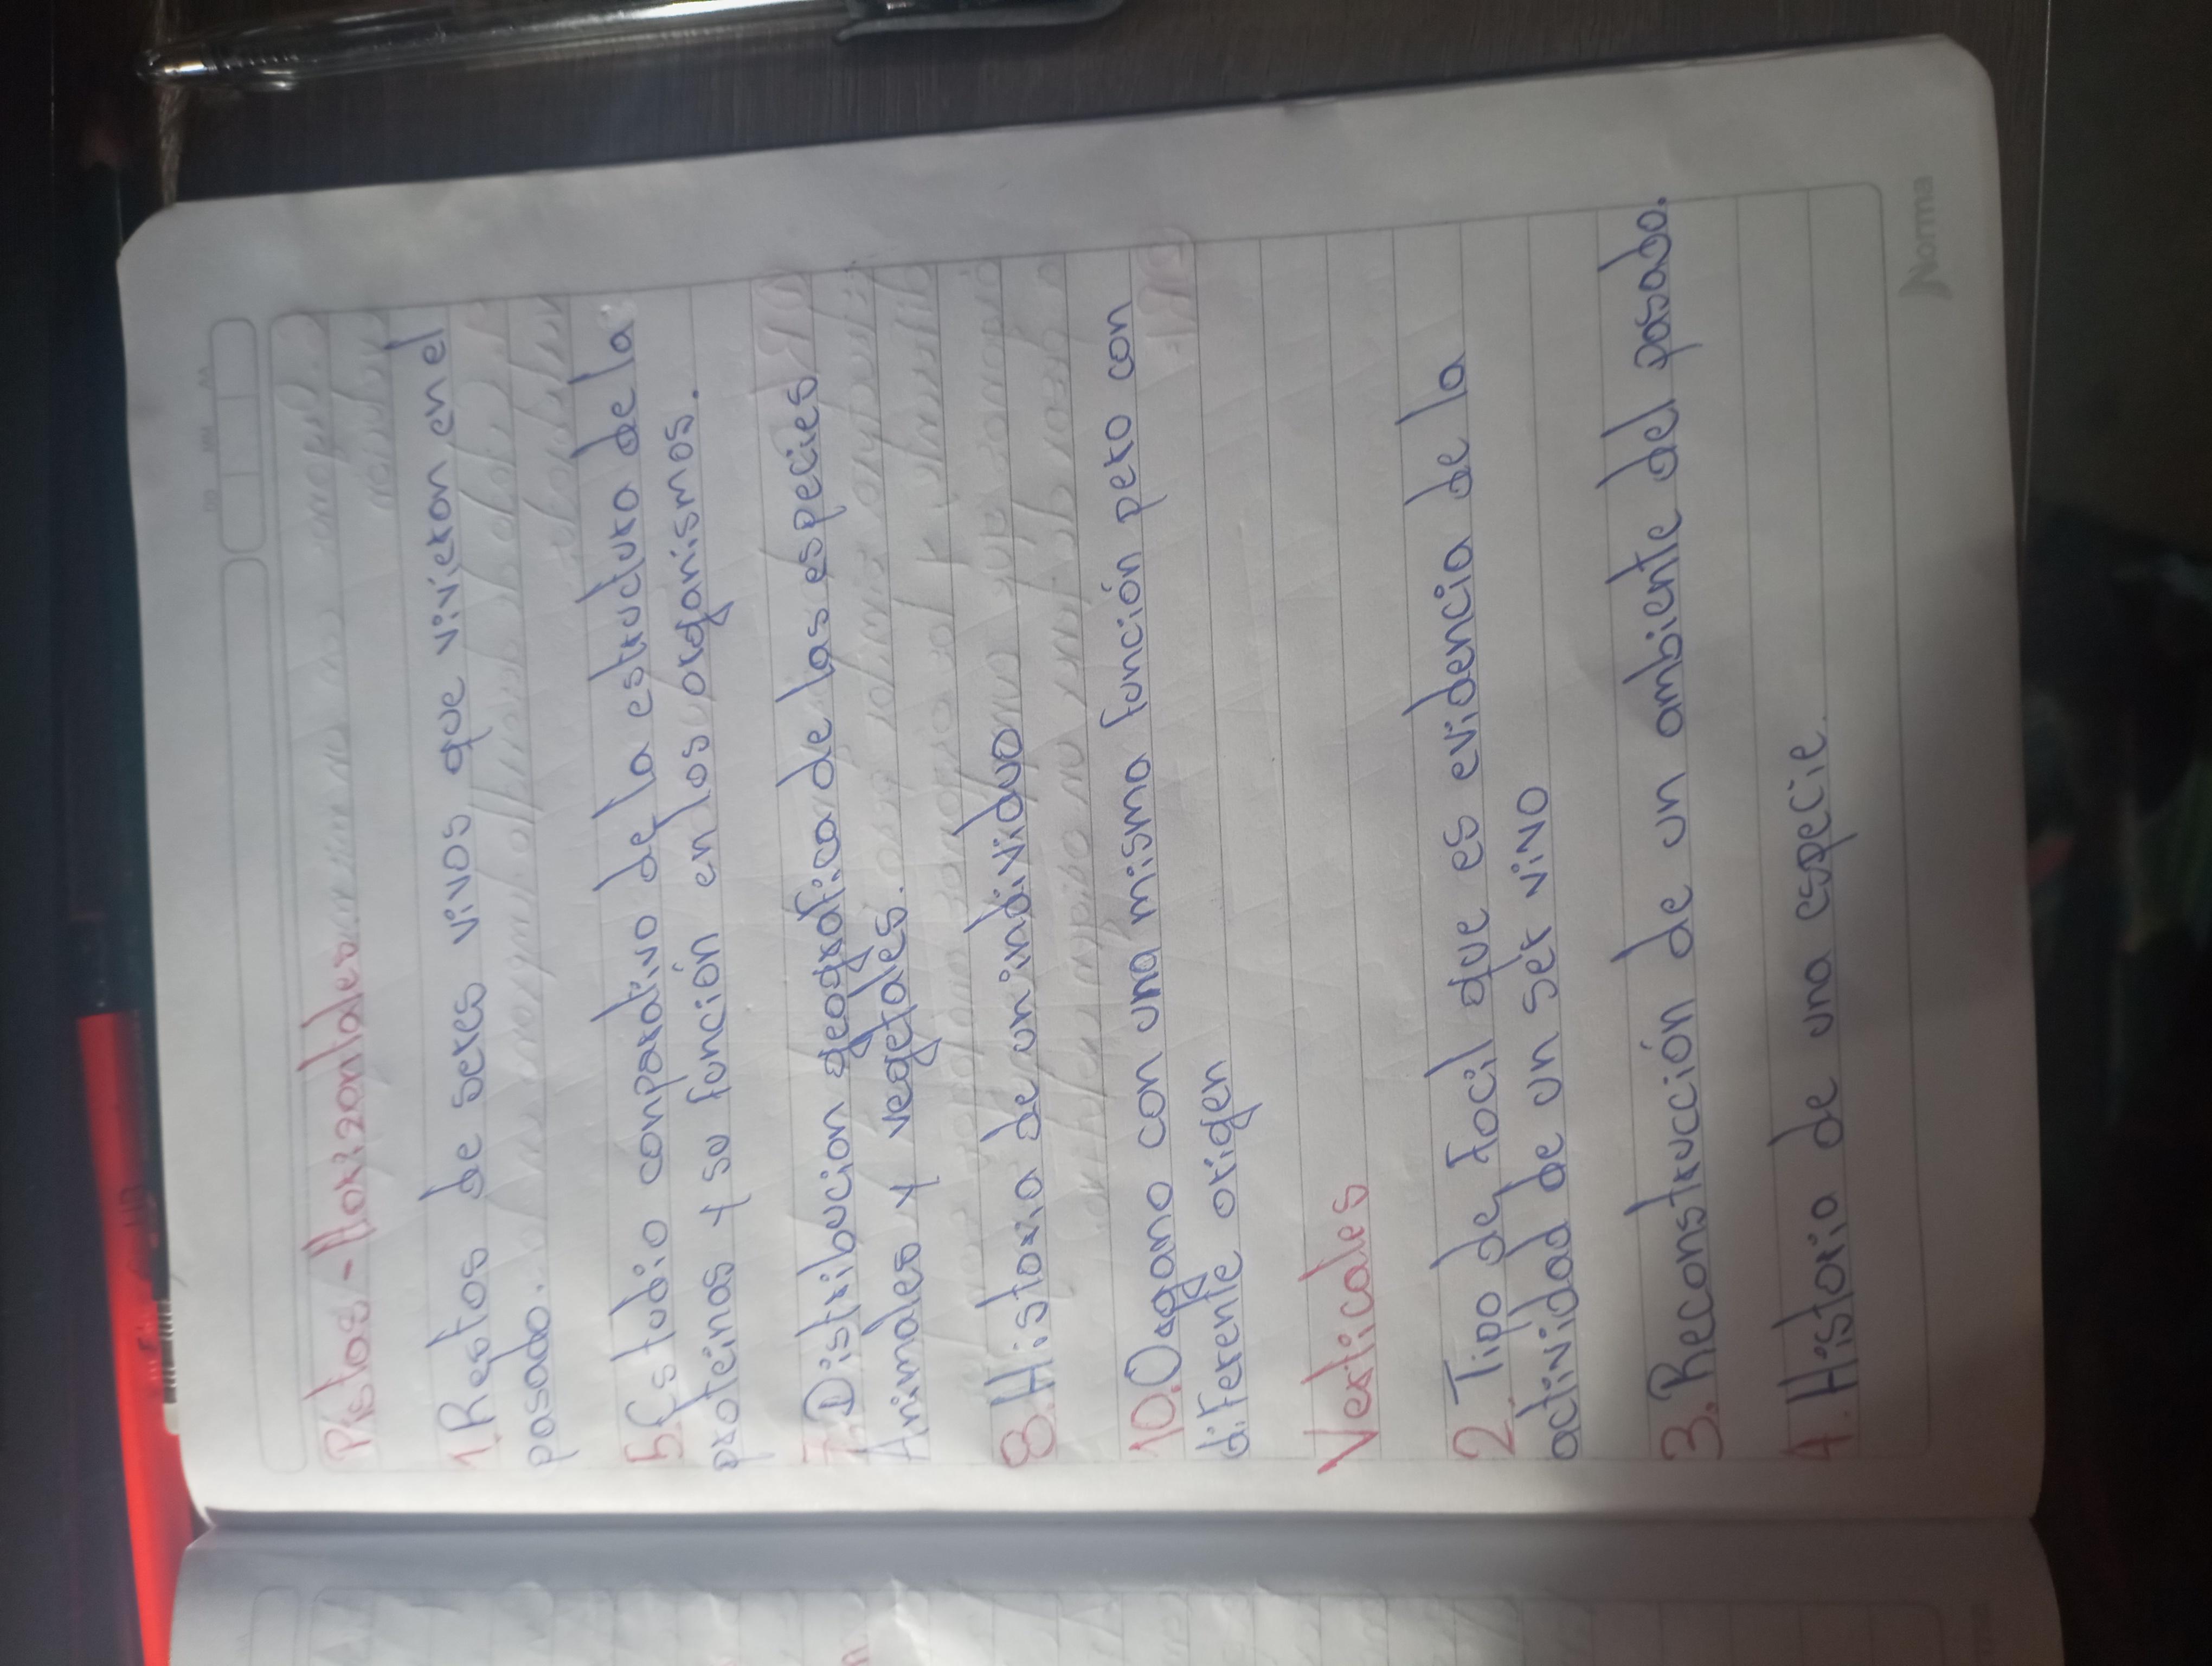 DD MM AA
Pistas - Horizontales
1. Restos de seres vivos que vivieron en el
pasado.
5. Estudio comparativo de la estructura de la
proteinas y su función en los organismos.
7. Distribucion geografica de las especies
Animales y vegetales.
8. Historia de un individuo
10. Oagano con una misma función pero con
diferente origen
Verticales
2. Tipo de focil que es evidencia de la
actividad de un ser vivo
3. Reconstrucción de un ambiente del pasado.
4. Historia de una especie.
Norma